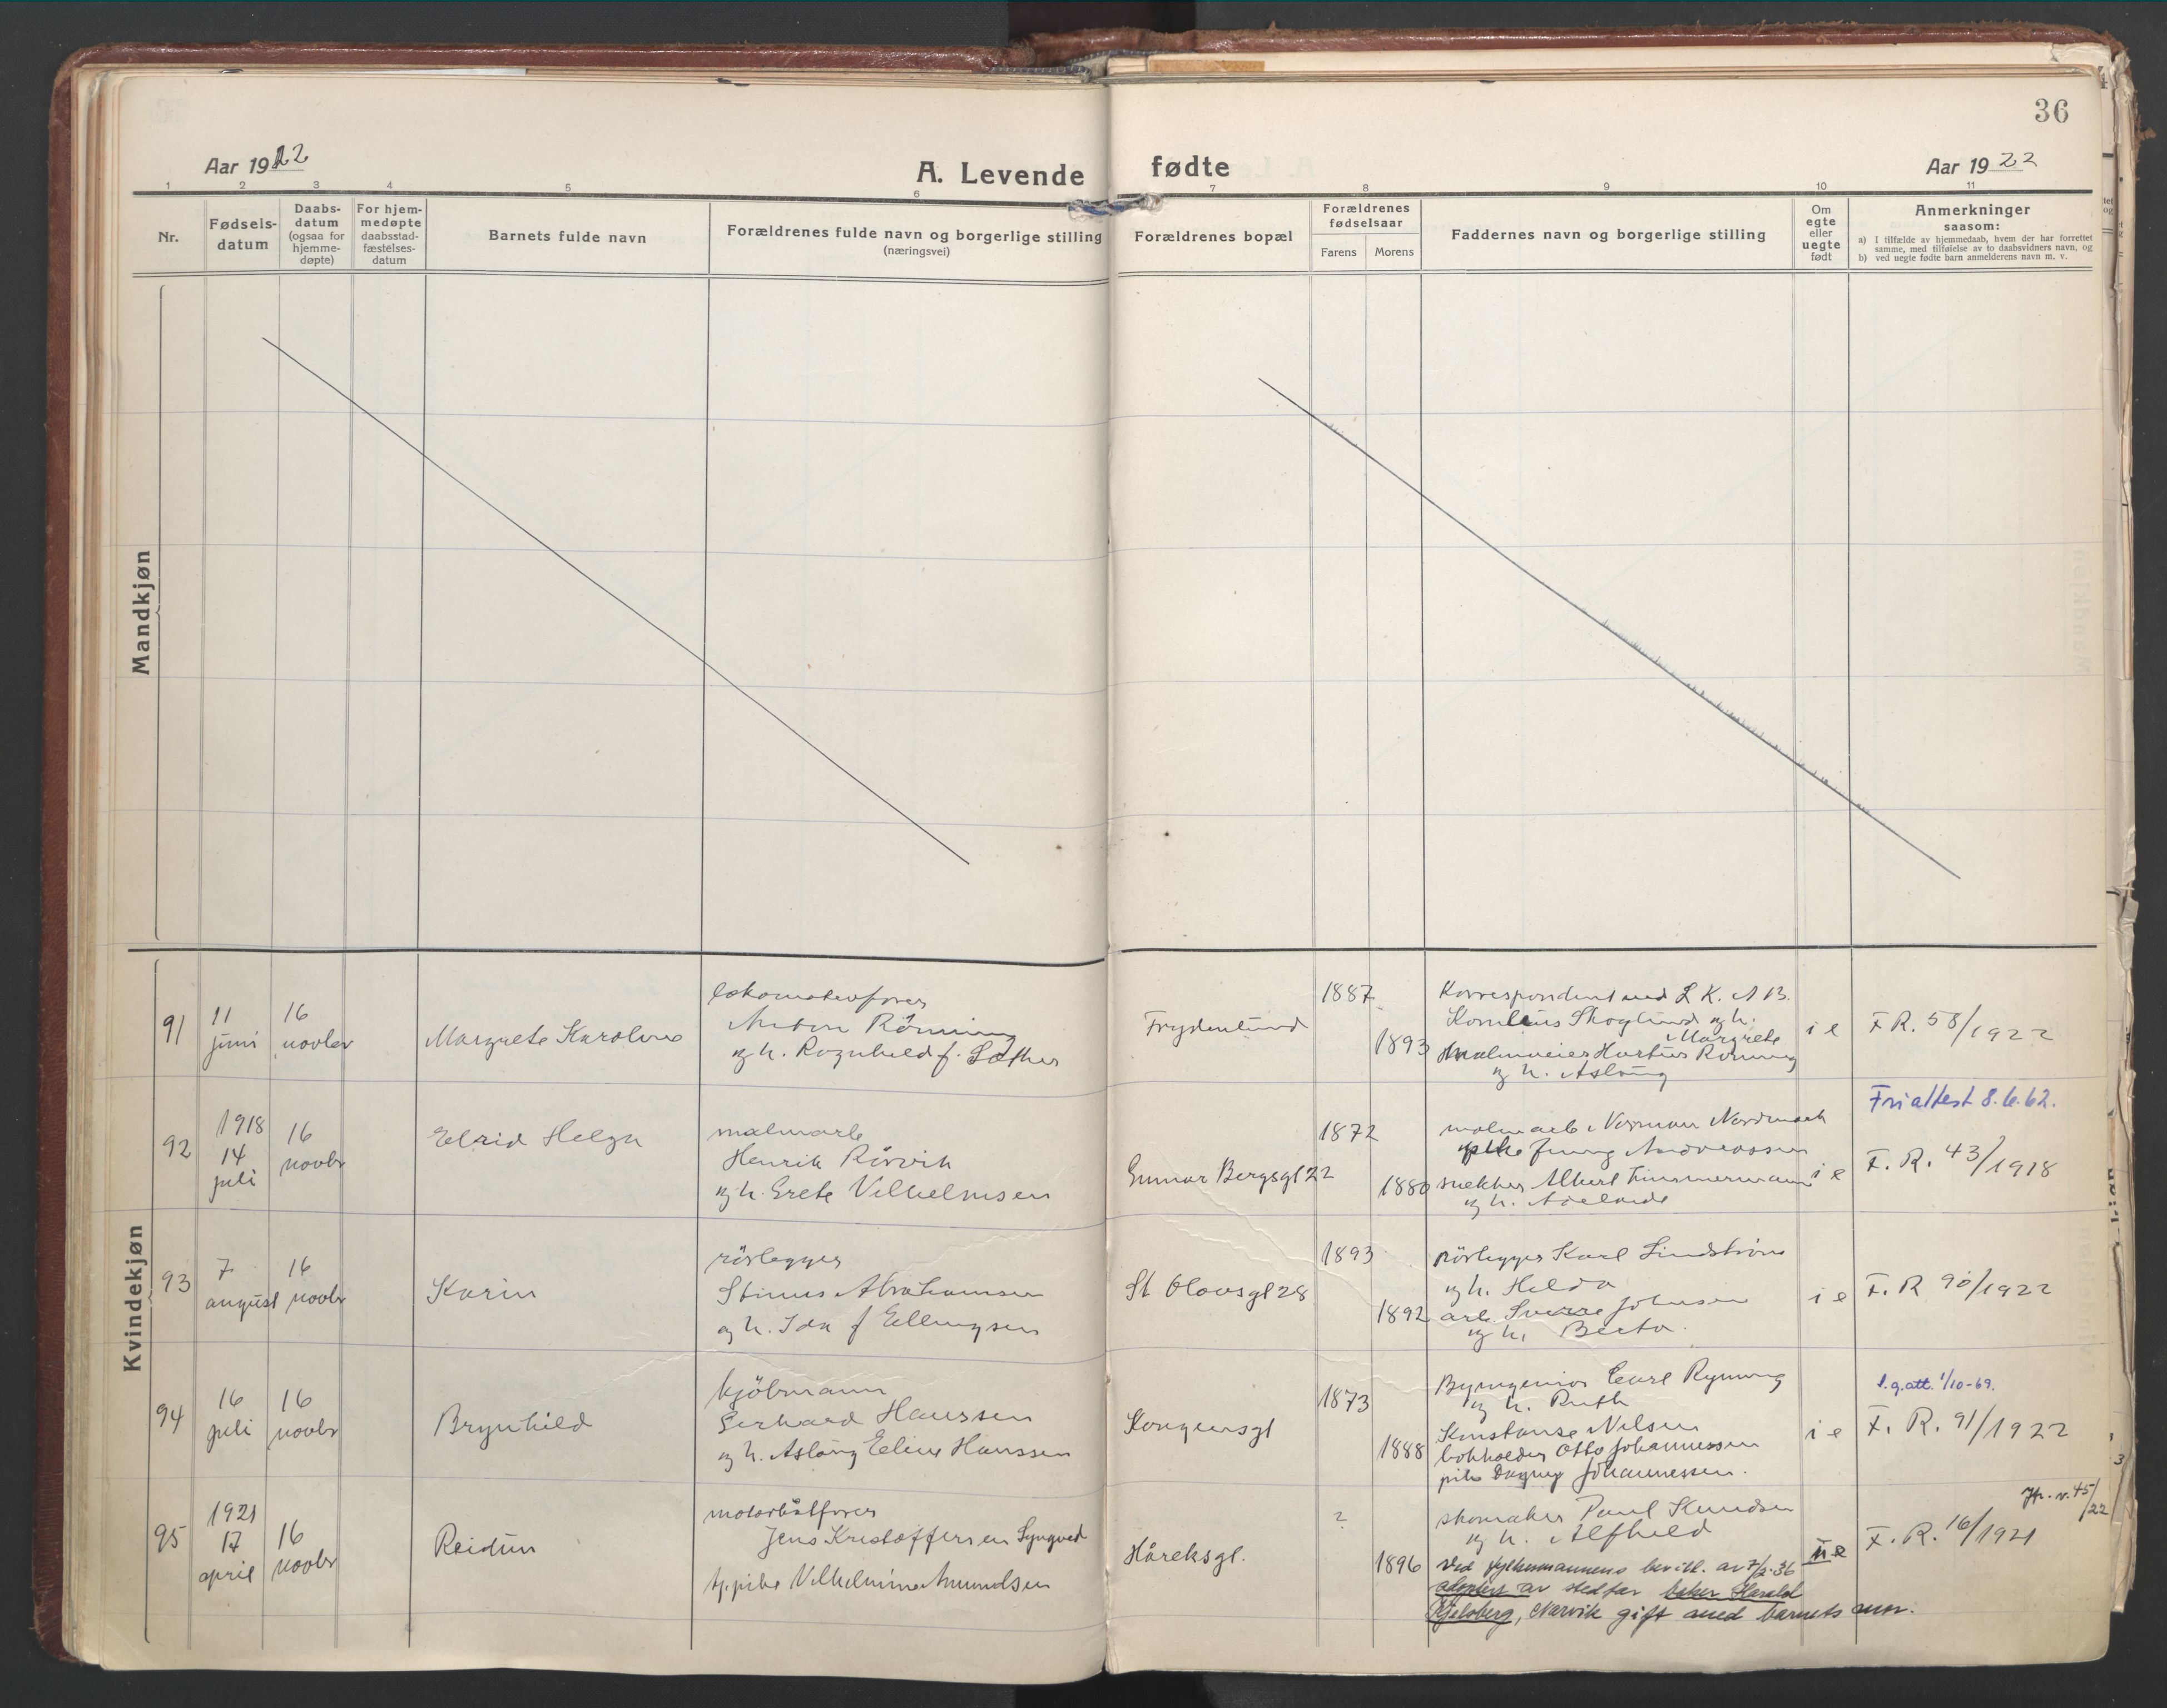 36
Aar 1922
A. Levende fødte
Aar 1922
1 2 3 4 5 6 7 8 9 10 11
Nr.
Fødsels-
datum
Daabs-
datum
(ogsaa for
hjemme-
døpte)
For hjem-
medøpte
daabsstad-
fæstelses-
datum
Barnets fulde navn
Forældrenes fulde navn og borgerlige stilling
(næringsvei)
Forældrenes bopæl
Forældrenes
fødselsaar
Farens
Morens
Faddernes navn og borgerlige stilling
Om
egte
eller
uegte
født
Anmerkninger
saasom:
a) I tilfælde av hjemmedaab, hvem der har forrettet
samme, med tilføielse av to daabsvidners navn, og
b) ved uegte fødte barn anmelderens navn m. v.
Mandkjøn
Kvindekjøn
91
11
juni
16
novbr
Margrete Karoline
lokomotivfører
Anton Rönning
og h. Ragnhild f. Sæther
Frydenlund
1887
1893
Korrespondent ved L K. A B.
Kornelius Skoglund og h.
Margrete
malmveier Hartvis Rönning
og h. Aslaug
i e
F R. 58/1922
92
1918
14
juli
16
novbr
Elrid Helga
malmarb
Henrik Rörvik
og h. Grete Vilhelmsen
Gunnar Bergsgt 22
1872
1880
malmarb Norman Nordmark
pike Jenny Andreassen
snekker Albert Timmermann
og h. Adelaide
i e
Fri attest 8.6.62.
F. R. 43/1918
93
7
august
16
novbr
Karin
rörlegger
Stinus Abrahamsen
og h. Ida f Ellingsen
St Olavsgt 28
1893
1892
rörlegger Karl Lindström
og h. Hilda
arb. Sverre Johnsen
og h. Berta.
i e
F. R 90/1922
94
16
juli
16
novbr
Brynhild
kjöbmann
Gerhard Hanssen
og h. Aslaug Eline Hanssen
Kongensgt
1873
1888
Byingeniør Carl Ryning
og h. Ruth
Konstanse Nilsen
bokholder Otto Johannessen
pike Dagny Johannessen.
i e
l.g.att. 1/10-69.
F. R. 91/1922
95
1921
17
april
16
novbr
Reidun
motorbåtförer
Jens Kristoffersen Lyngved
pike Vilhelmine Amundsen
Håreksgt.
?
1896
skomaker Paul Knudsen
og h. Alfhild
Ved fylkesmannens bevill. av 7/2-36
adoptert av stedfar baker Harald
Kjelsberg, Narvik gift med barnets mor.
u e
Jfr. n. 45/22
F. R. 16/1921